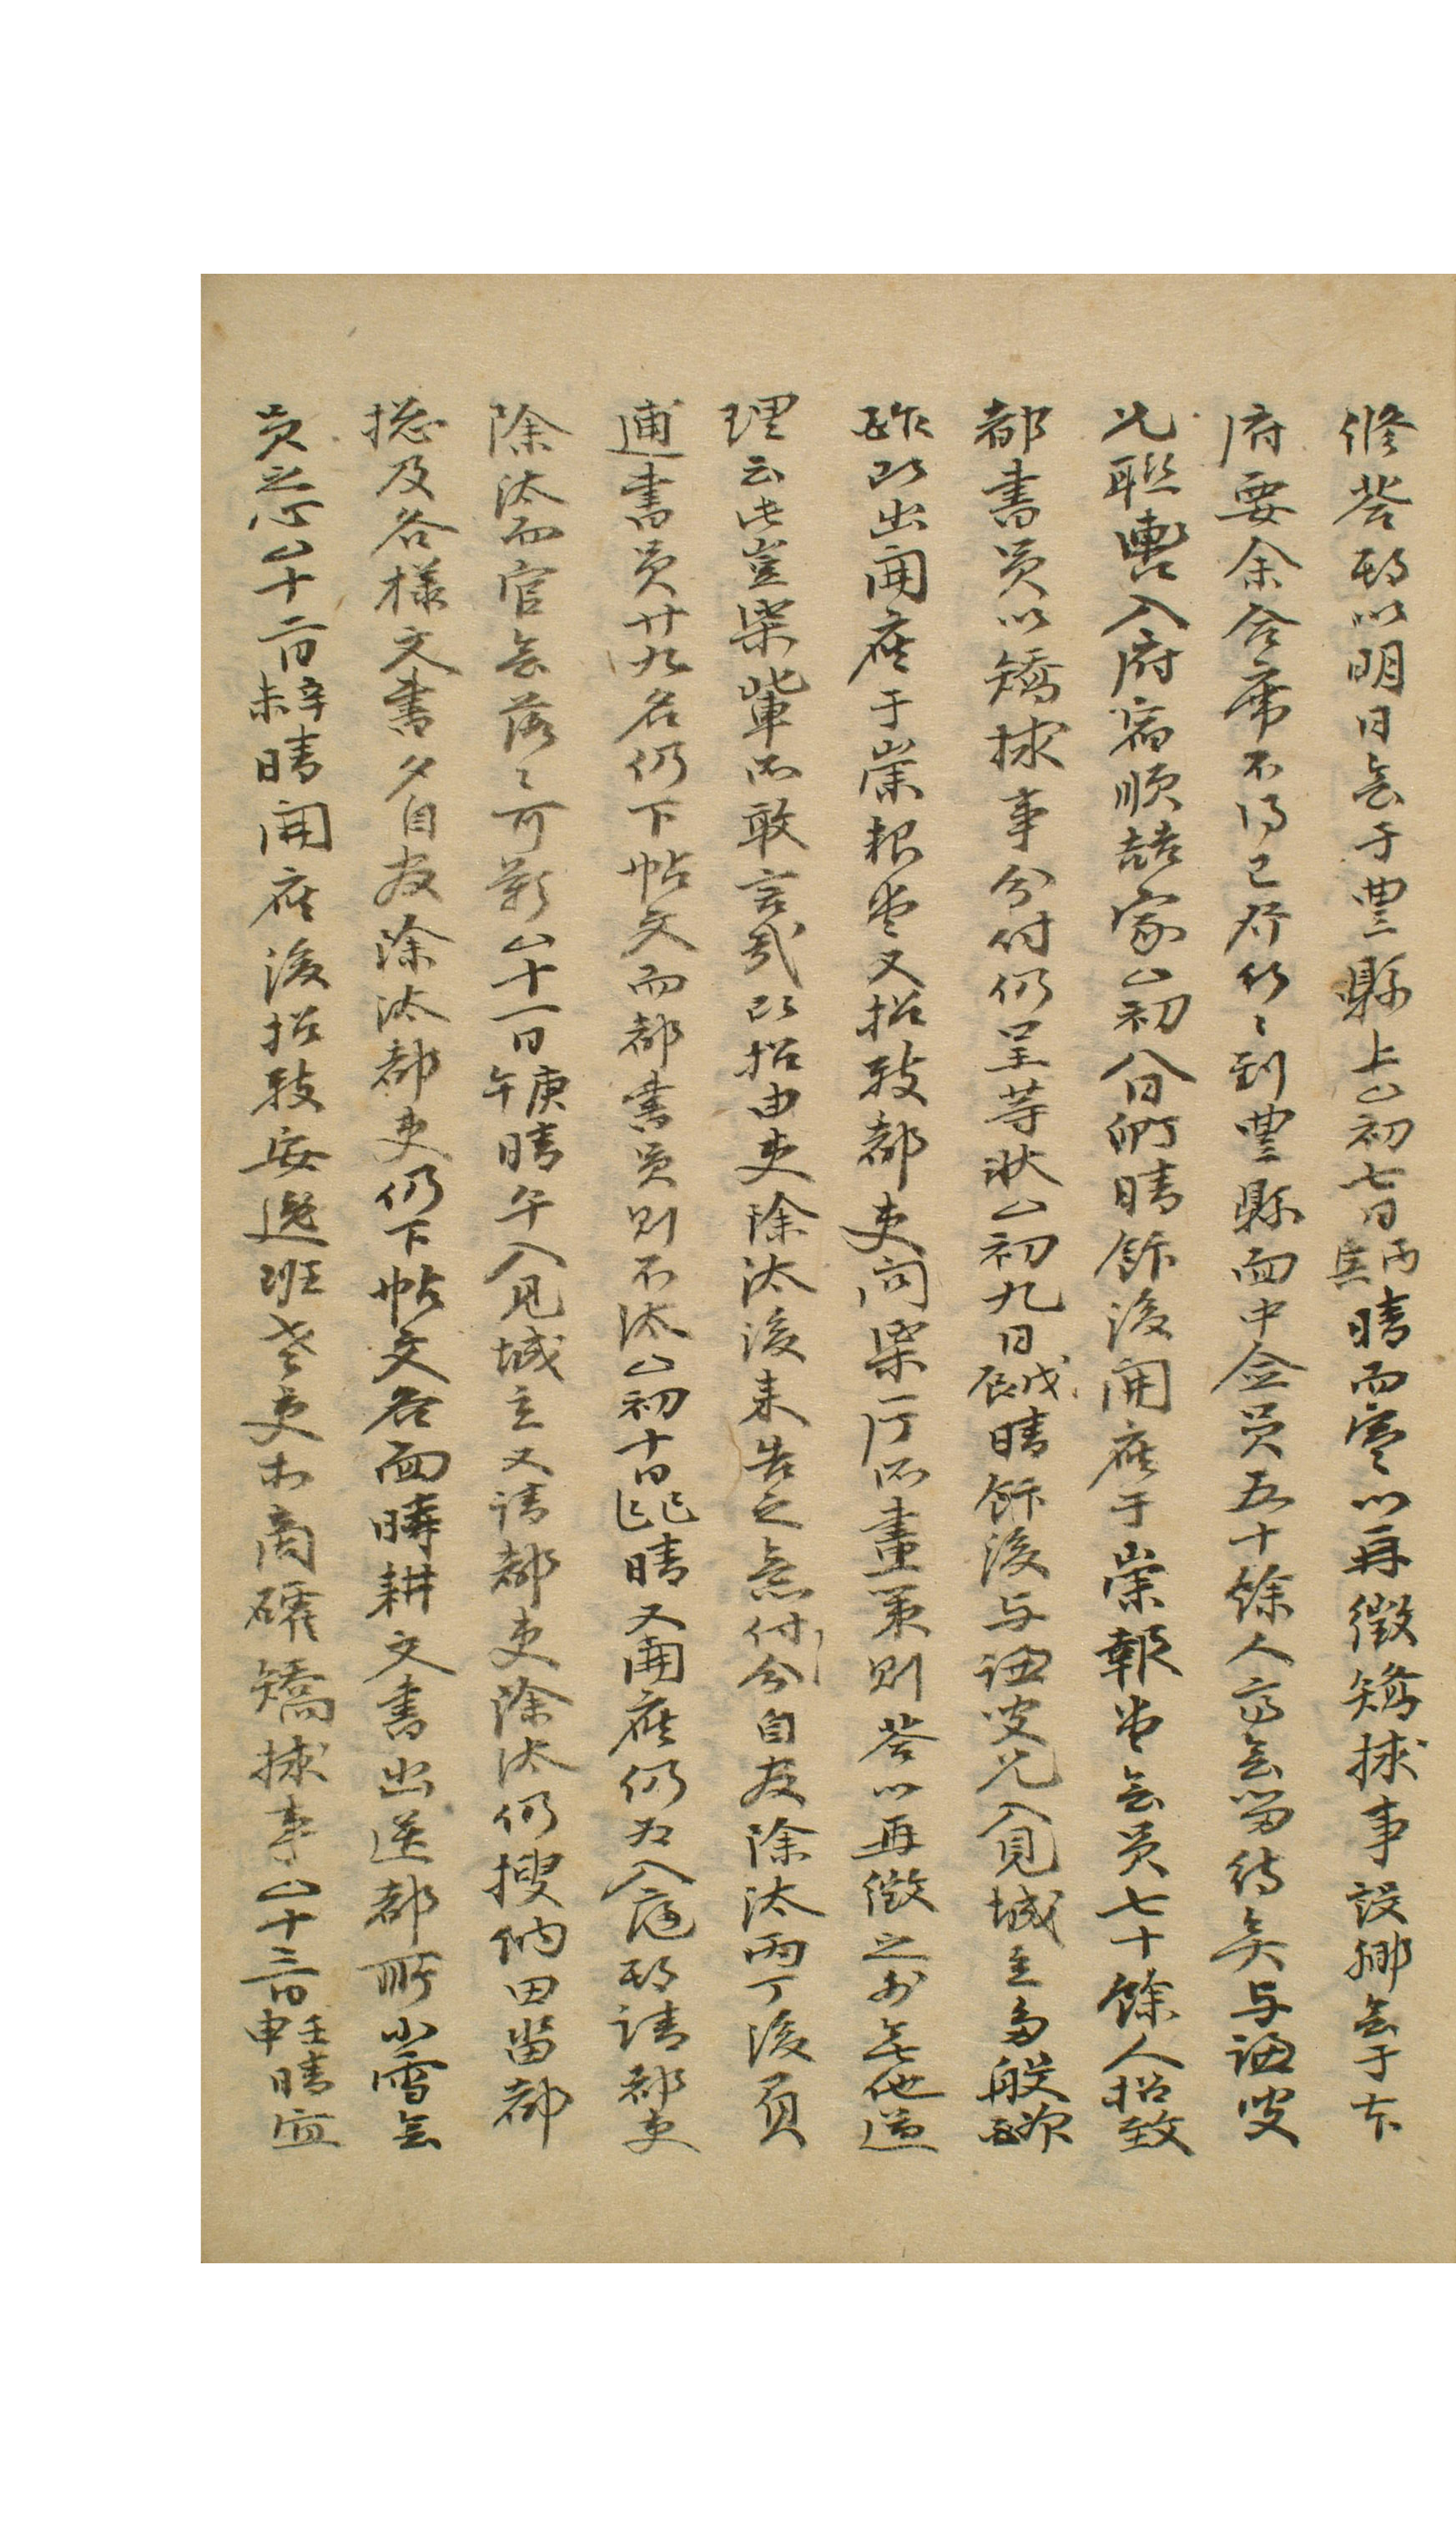 修答邸以明日会于豊縣上△初七日丙寅晴而寒以再徵矯捄事設鄕会于本
府要余合席不得已分行〻到豊縣面中佥員五十餘人齊会留待矣与誨叟
兄聯轡入府宿順喆家△初八日丁卯晴飯後開座于崇報堂会員七十餘人招致
都書員以矯捄事分付仍呈等狀△初九日戊辰晴飯後与誨叟兄入見城主多般酬
酢以出開座于崇報堂又招致都吏問渠一厅所畫策則答以再徵之外無他道
理云此豈渠輩所敢言哉以招由吏除汰後来告之意付分自夜除汰兩丁後負
逋書員廿九名仍下帖文而都書員則不汰△初十日己巳晴又開座仍为入庭邸請都吏
除汰而官無落〻可歎△十一日庚午晴午入見城主又請都吏除汰仍搜納田畓都
摠及各樣文書夕自夜除汰都吏仍下帖文各面時耕文書出送都所小雪会
員益心△十二日辛未晴開座後招致安逸班老吏木商礭矯捄事△十三日壬申晴宜